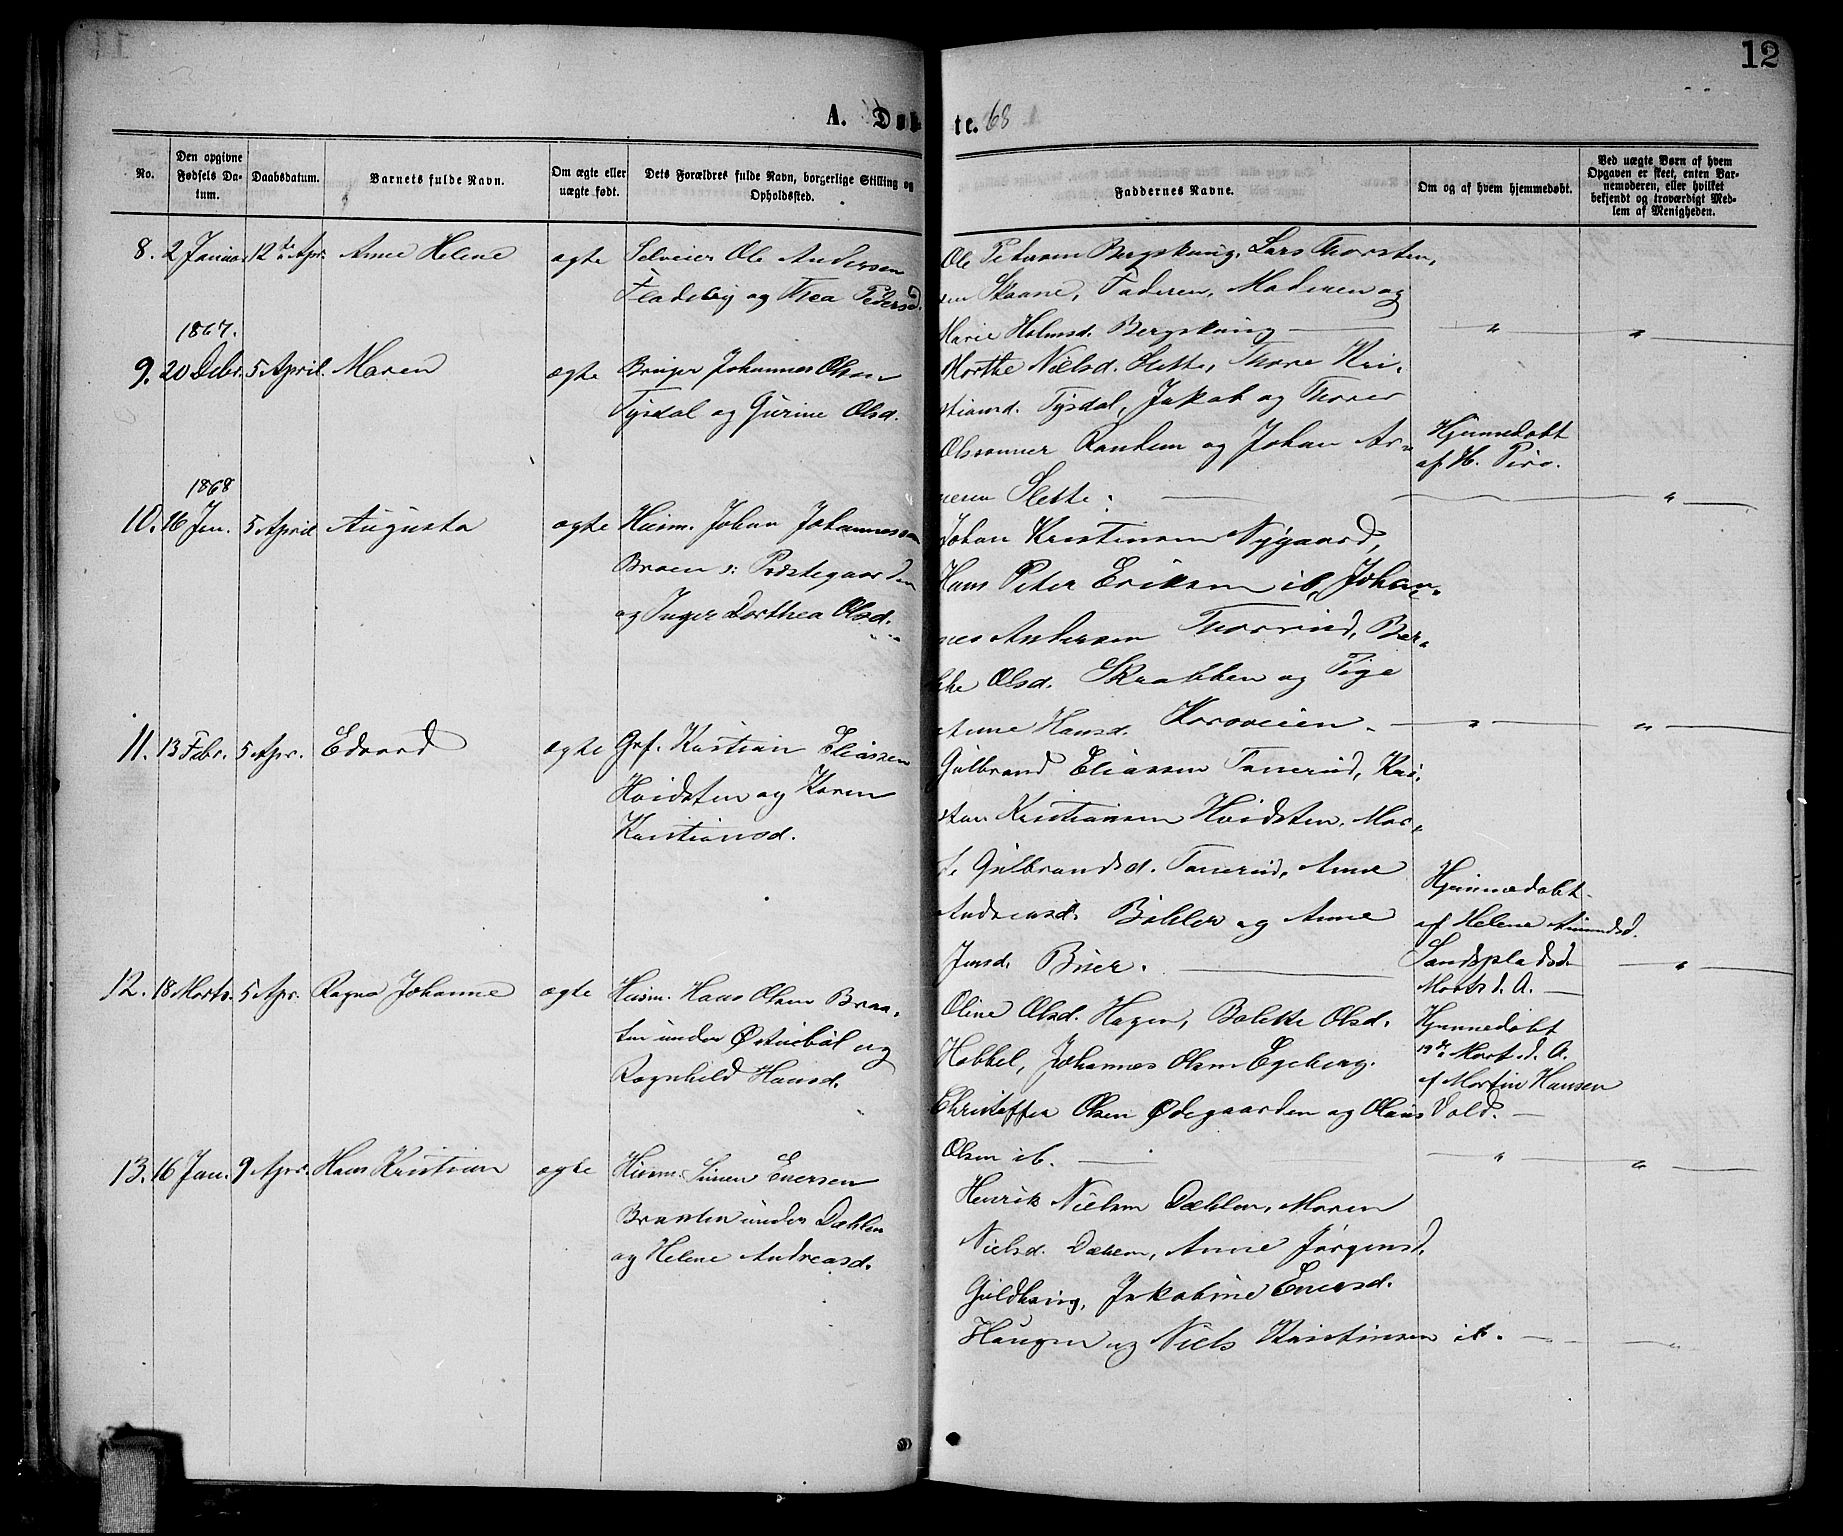 12
A. Døbte. 68
No.
Den opgivne Fødsels Datum.
Daabsdatum.
Barnets fulde Navn.
Om ægte eller uægte født.
Dets Forældres fulde Navn, borgerlige Stilling og Opholdssted.
Faddernes Navne.
Om og af hvem hjemmedøbt.
Ved uægte Børn af hvem Opgaven er skeet, enten Barnemoderen, eller hvilket bekjendt og troværdigt Medlem af Menigheden.
8. 2 Januar 12te Apr. Anne Helene ægte Selveier Ole Andersen
Fladeby og Thea Pedersd.
Ole Petersen Bergskaug, Lars Thorsten,
sen Skaane, Faderen, Moderen og
Marie Holmsd. Bergskaug — " — " —
1867.
9. 20 Debr. 5 April. Maren ægte Bruger Johannes Olsen
Tysdal og Gurine Olsd.
Marthe Nielsd. Slette, Thore Kri-
stiansd. Tysdal, Jakob og Thorer
Olssønner Randem og Johan Ar-
neren Slette. — " —
Hjemmedøbt
af H. Piro.
1868
10. 16 Jan. 5 April Augusta ægte Husm. Johan Johannessen
Braen u: Præstegaarden
og Inger Dorthea Olsd.
Johan Kristensen Nygaard,
Hans Peter Eriksen ib, Johan-
nes Andersen Thorrud, Ber-
the Olsd. Skrabben og Pige
Anne Hansd. Korsveien — " — " —
11. 13 Febr. 5 Apr. Edvard ægte Grf. Kristian Eliassen
Hvidsten og Karen
Kristiansd.
Gulbrand Eliassen Tanerud, Kri-
stian Kristiansen Hvidsten, Mar-
te Gulbrandsd. Tanerud, Anne
Andreasd. Bøhler og Anne
Jensd. Buer. — " —
Hjemmedøbt
af Helene Amundsd.
Sandspladsd
Marts d. A. —
12. 18 Marts. 5 Apr. Ragna Johanne ægte Husm. Hans Olsen Braa-
ten under Østisbøl og
Ragnhild Hansd.
Oline Olsd. Hagen, Bolette Olsd.
Hebbel, Johannes Olsen Egeberg.
Christoffer Olsen Ødegaarden og Olaus
Olsen ib. — " — " —
Hjemmedøbt
19de Mart d. A.
af Martin Hansen
Vold. —
13. 16 Jan. 9 Apr. Hans Kristian ægte Husm. Simen Enersen
Braaten under Dæhlen
og Helene Andreasd.
Henrik Nielsen Dæhlen, Maren
Nielsd. Dæhen, Anne Jørgensd.
Guldhaug, Jakobine Enersd.
Haugen og Niels Kristinsen ib. — "